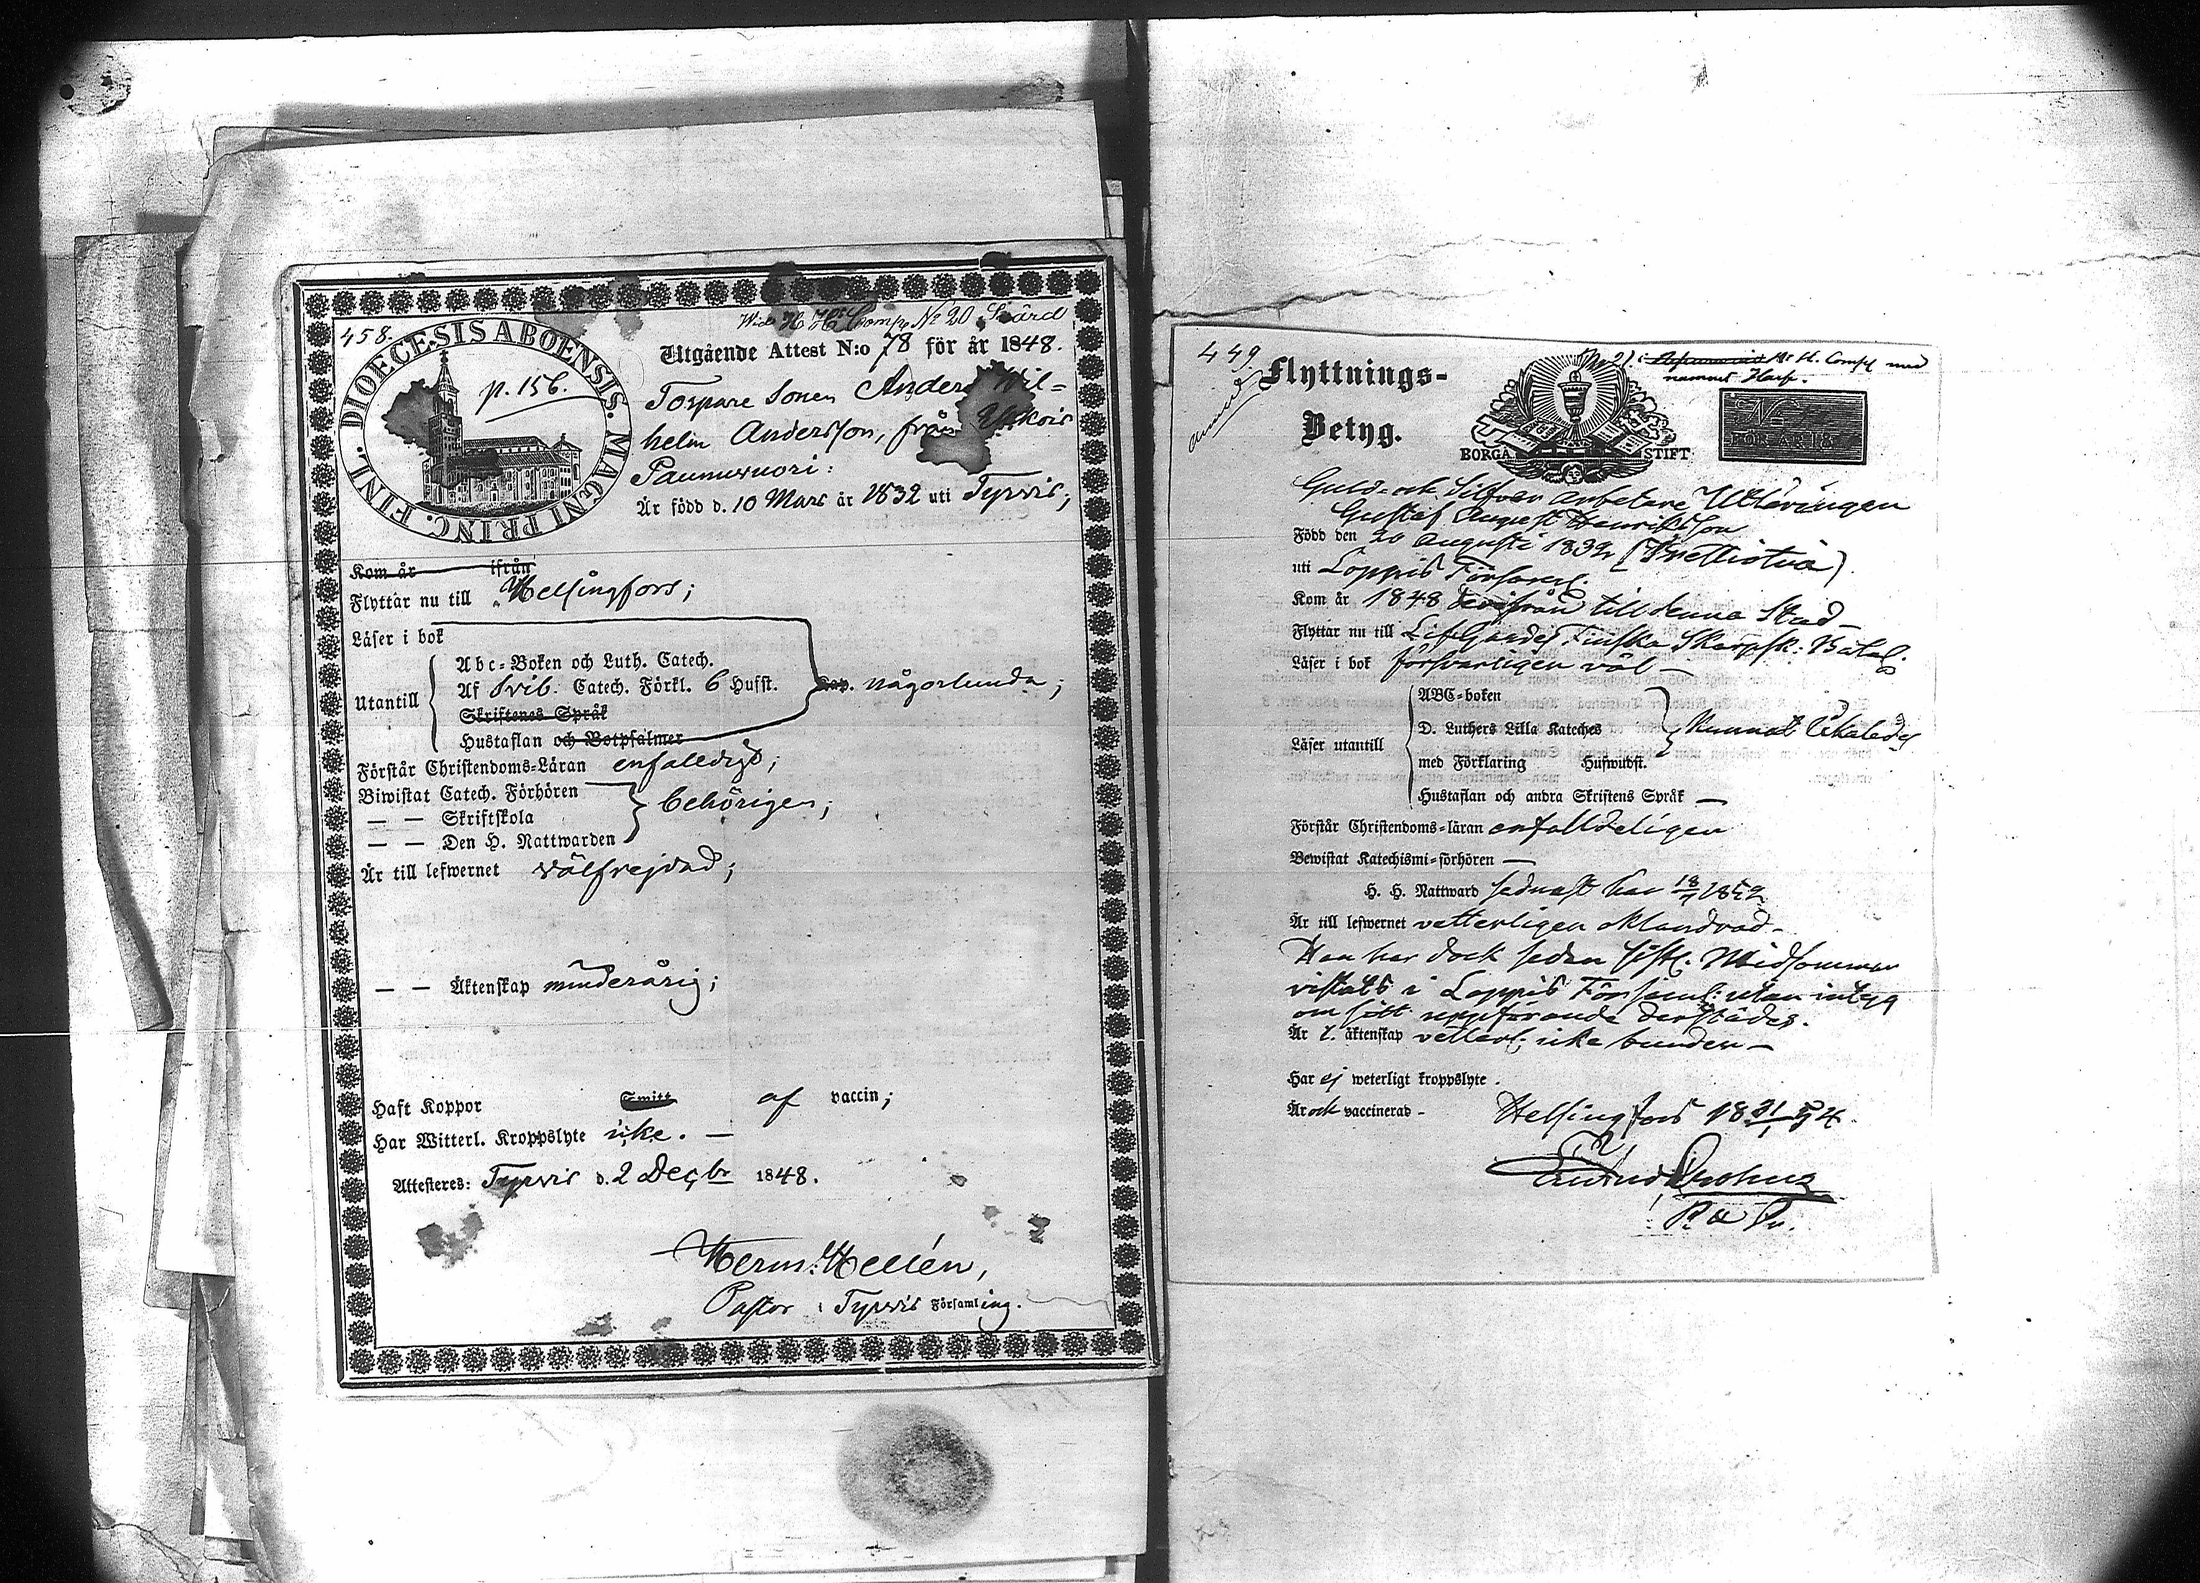 458.
DIOECESIS ABOENSIS. MAGNI PRINC. FINL.
p. 156.
Wid H. H: Comp. No 20. Svärd
Utgående Attest N:o 78 för år 1848.
Torpare Sonen Anders Wil-
helm Andersson, från
Paunuvuori:
Är född d. 10 Mars år 1832 uti Tyrvis;
Kom år ifrån
Flyttar nu till Helsingfors;
Läser i bok
Utantill
Abc-Boken och Luth. Catech.
Af Svib. Catech. Förkl. 6 Hufst. någorlunda;
Skriftenes Språk
Hustaflan och Botpsalmer
Förstår Christendoms-Läran enfaldigt;
Biwistat Catech. Förhören
— — Skriftskola behörigen;
— — Den H. Nattwarden
Är till lefwernet välfrejdad;
— — Äktenskap minderårig;
Haft Koppor Smitt af vaccin;
Har Witterl. Kroppslyte icke. —
Attesteres: Tyrvis d. 2 Decbr 1848.
Herm: Hellén,
Pastor i Tyrvis Församling.
449
Flyttnings-
Betyg.
No 21 i H. Comp med
namnet Harp.
BORGÅ STIFT
No
FÖR ÅR 18
Guld- och Silfver arbetare Utläringen
Gustaf August Henriksson
Född den 20 Augusti 1832
uti Loppis Församl.
Kom år 1848 derifrån till denna Stad —
Flyttar nu till Lif Gardes Finska Skarpsk: Batal.
Läser i bok försvarligen väl —
Läser utantill
ABC-boken
D. Luthers Lilla Kateches
med Förklaring Huswudst.
Hustaflan och andra Skriftens Språk —
Förstår Christendoms-läran enfalldeligen
Bewistat Katechismi-förhören —
H. H. Nattward sednast här 18/7 1852
Är till lefwernet vetterligen oklandrad —
Han har dock sedan sistl. Midsommar
vistats i Loppis Församl: utan intyg
om sitt uppförande derstädes.
Är t. äktenskap vetterl: icke bunden —
Har ej weterligt kroppslyte.
Är och vaccinerad —
Helsingfors 18 31/1 54.